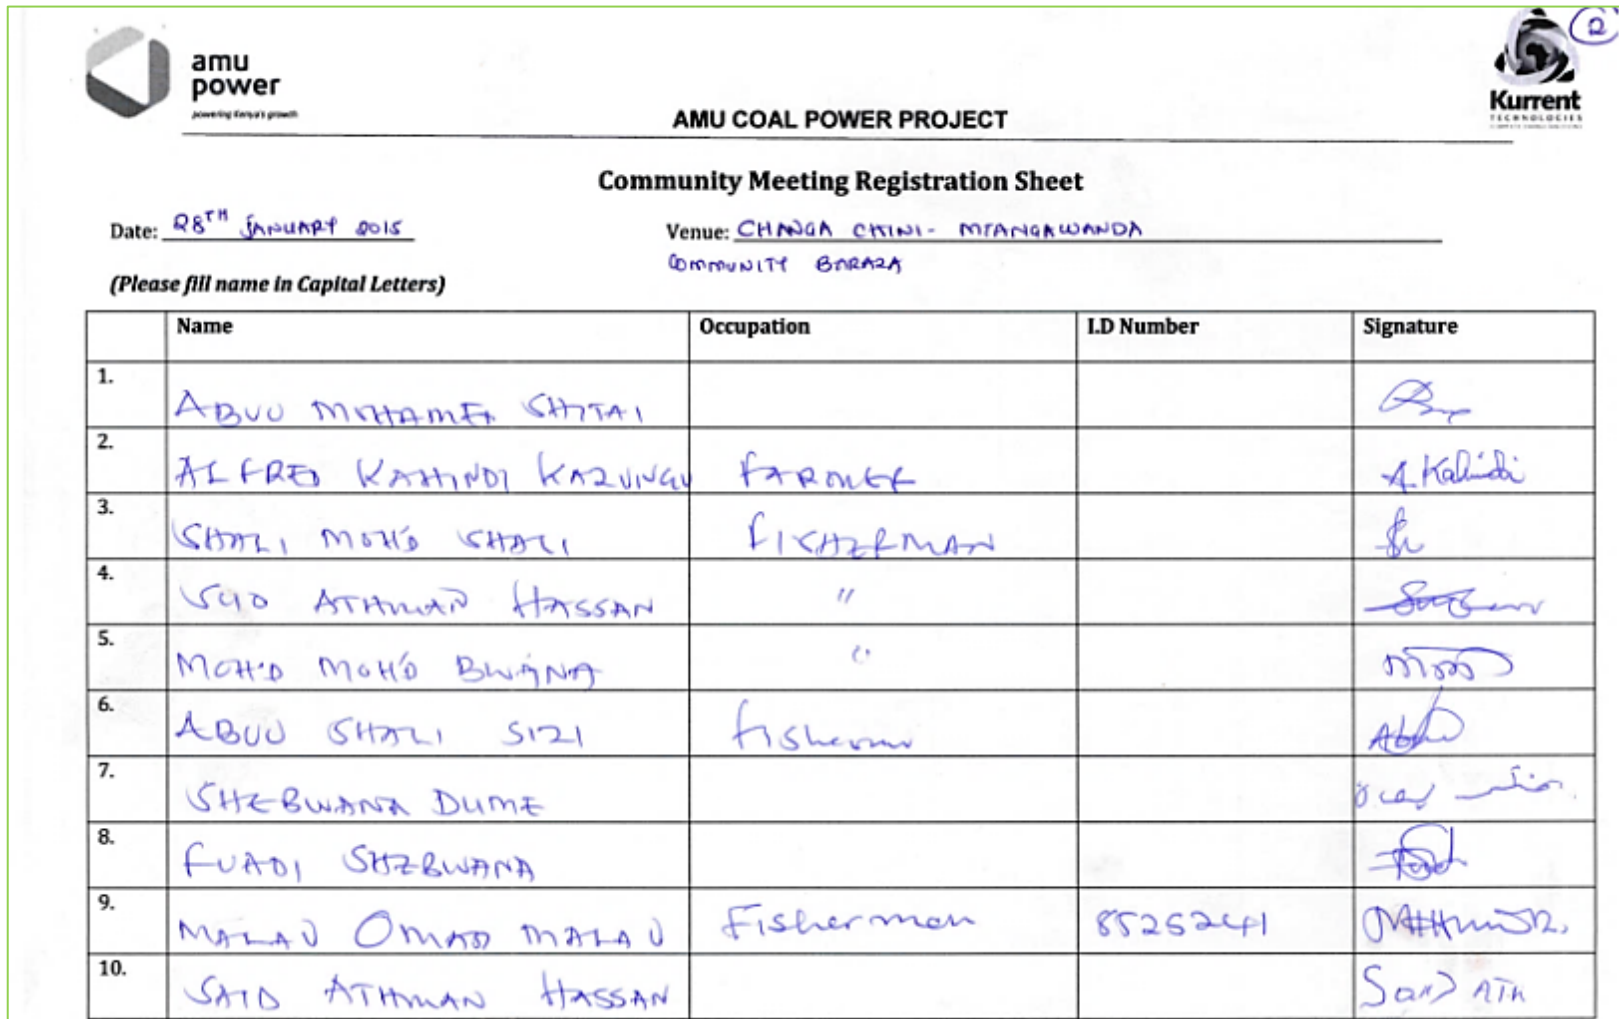 amu
power
powering Kenya's growth
2
Kurrent
TECHNOLOGIES
AMU COAL POWER PROJECT
Community Meeting Registration Sheet
Date: 28TH JANUARY 2015 Venue: CHANGA CHINI- MTANGAWANDA
COMMUNITY BARAZA
(Please fill name in Capital Letters)
Name Occupation I.D Number Signature
1. ABUU MOHAMED SHITAI
2. ALFRED KAHINDI KAZUNGU FARMER A.Kahindi
3. SHALI MOH'D SHALI FISHERMAN
4. ATHMAN HASSAN "
5. MOH'D MOH'D BWANA "
6. ABUU SHALI SIZI fisherman
7. SHEBWANA DUME
8. FUADI SHEBWANA
9. MALAU OMAR MALAU Fisherman 85252241
10. SAID ATHMAN HASSAN